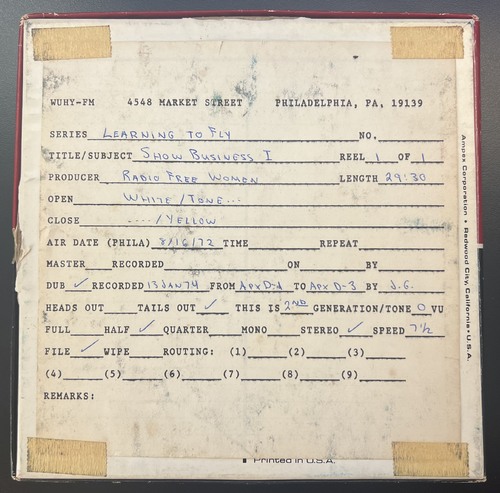 WUHY-FM 4548 MARKET STREET PHILADELPHIA, PA, 19139
SERIES LEARNING TO FLY NO.
TITLE/SUBJECT SHOW BUSINESS I REEL 1 OF 1
PRODUCER RADIO FREE WOMEN LENGTH 29:30
OPEN WHITE/TONE...
CLOSE ..../YELLOW
AIR DATE (PHILA) 8/16/72 TIME REPEAT
MASTER RECORDED ON BY
DUB ✓ RECORDED 13JAN74 FROM APXD-1 TO APXD-3 BY J.G.
HEADS OUT TAILS OUT ✓ THIS IS 2ND GENERATION/TONE 0 VU
FULL HALF ✓ QUARTER MONO STEREO ✓ SPEED 7½
FILE ✓ WIPE ROUTING: (1) (2) (3)
(4) (5) (6) (7) (8) (9)
REMARKS:
Ampex Corporation • Redwood City, California • U.S.A.
Printed in U.S.A.